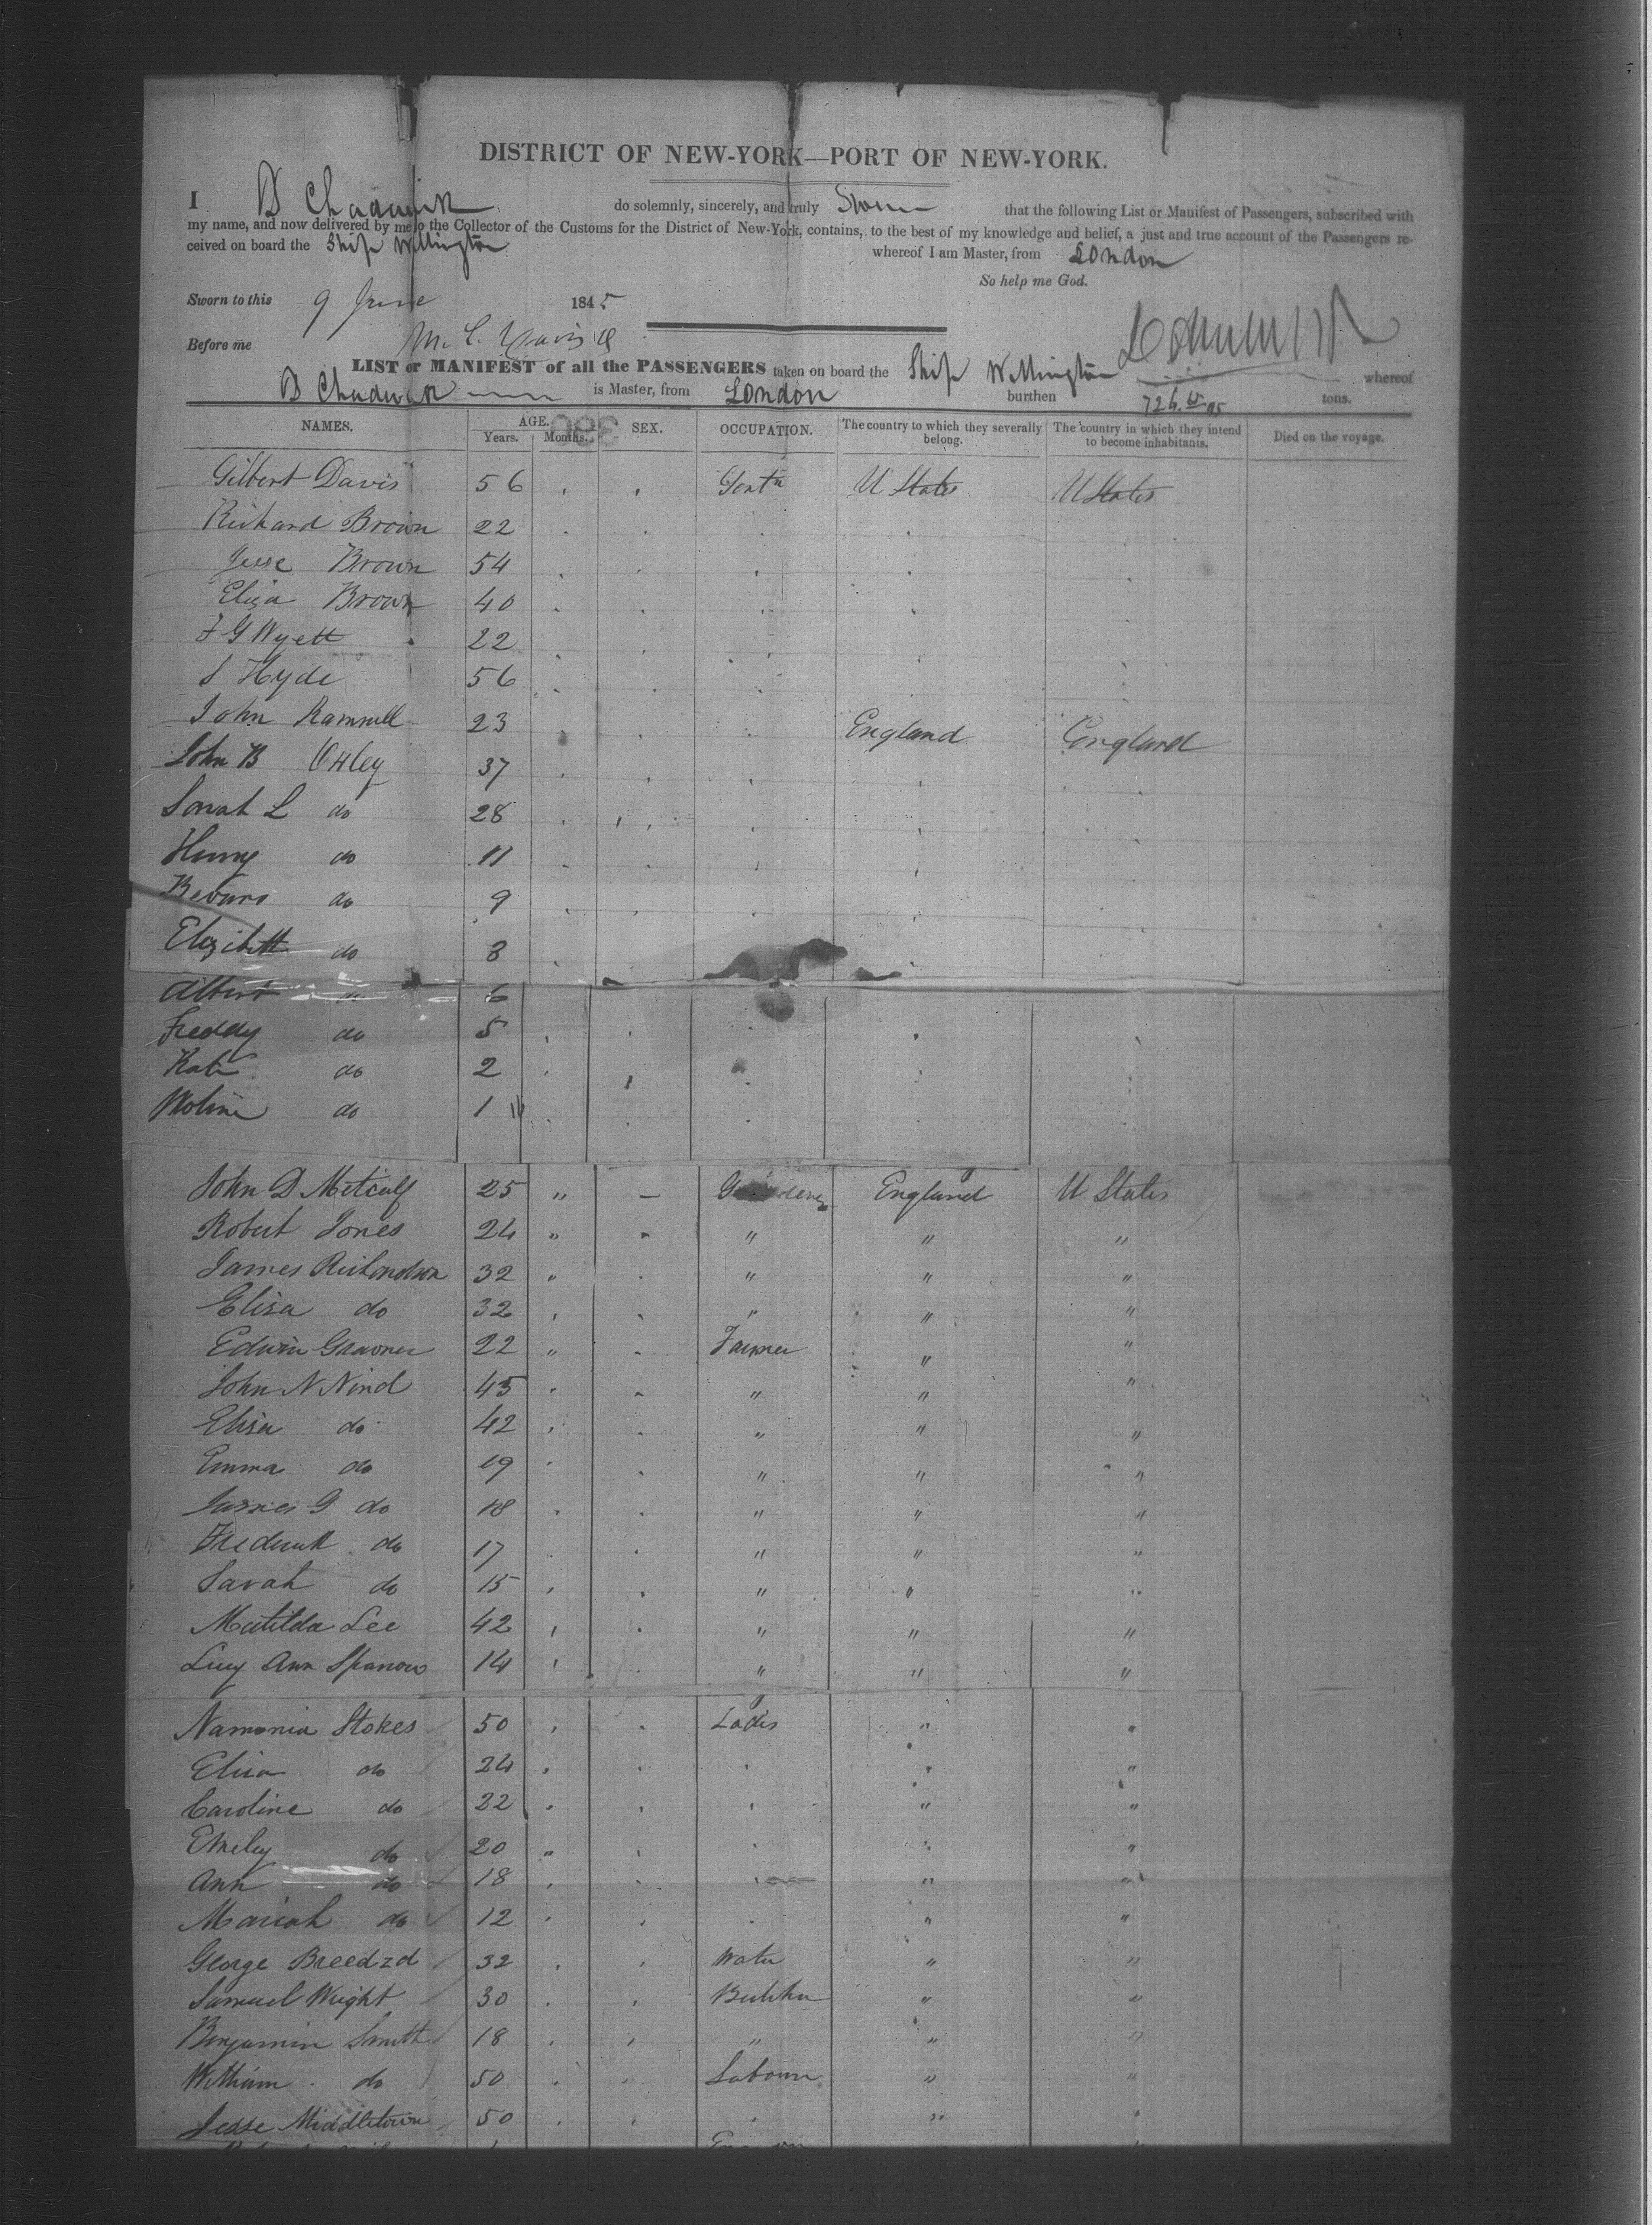 DISTRICT OF NEW-YORK—PORT OF NEW-YORK.
I D Chadwick do solemnly, sincerely, and truly Swear that the following List or Manifest of Passengers, subscribed with
my name, and now delivered by me to the Collector of the Customs for the District of New-York, contains, to the best of my knowledge and belief, a just and true account of the Passengers re-
ceived on board the Ship Wellington whereof I am Master, from London
So help me God.
Sworn to this 9 June 1845
Before me
LIST or MANIFEST of all the PASSENGERS taken on board the Ship Wellington whereof
D Chadwick is Master, from London burthen 726 tons.
NAMES. AGE. Years. Months. SEX. OCCUPATION. The country to which they severally belong. The country in which they intend to become inhabitants. Died on the voyage.
380
Gilbert Davis 56 Gentn U States U States
Richard Brown 22
Jesse Brown 54
Eliza Brown 40
F G Wyett 22
S Hyde 56
John Rammell 23 England England
John B 37
Sarah L do 28
Henry do 11
do 9
Elizibeth do 8
Albert " 6
Freddy do 5
Kate do 2
do 1
John D Metcalf 25 " England U States
Robert Jones 24 " " " "
James Richardson 32 " " " "
Elisa do 32 " " "
Edwin 22 " Farmer " "
John N Nind 45 " " "
Elisa do 42 " " "
Emma do 19 " " "
James G do 18 " " "
Frederick do 17 " " "
Sarah do 15 " " "
Matilda Lee 42 " " "
Lucy Ann Sparrow 14 " " "
Stokes 50 Ladis "
Elisa do 24 "
Caroline do 22 " "
Emely do 20 " "
Ann do 18 " "
Mariah do 12 " "
George 32 " "
Samuel Wright 30 " "
Benjamin Smith 18 " " "
William do 50 " "
Jesse Middletown 50 "